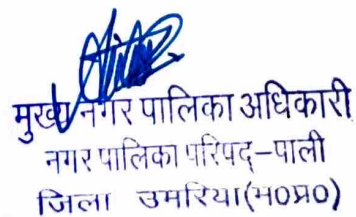 मुख्य नगर पालिका अधिकारी
नगर पालिका परिषद-पाली
जिला उमरिया(म०प्र०)